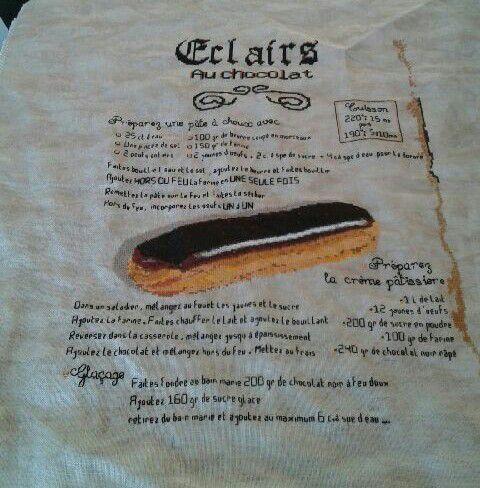 Eclairs
Au chocolat
Préparez une pâte à choux avec
25 cl d'eau
100 gr de beurre coupé en morceaux
Une pincée de sel
150 gr de farine
2 oeufs entiers
2 jaunes d'oeufs
2 c à spe de sucre
d'eau pour la dorure
Cuisson
220°: 15 mn
puis
190°:
Faites bouillir l'eau et le sel, ajoutez le beurre et faites bouillir
Ajoutez HORS DU FEU la farine en UNE SEULE FOIS
Remettez la pâte sur le feu et faites la sécher
Hors du feu, incorporez les oeufs UN à UN
Préparez
la crème pâtissière
1 L de lait
12 jaunes d'oeufs
200 gr de sucre en poudre
100 gr de farine
240 gr de chocolat noir râpé
Dans un saladier, mélangez au fouet les jaunes et le sucre
Ajoutez la farine. Faites chauffer le lait et ajoutez le bouillant
Reversez dans la casserole, mélangez jusqu'à épaississement
Ajoutez le chocolat et mélangez hors du feu. Mettez au frais
Glaçage
Faites fondre au bain marie 200 gr de chocolat noir à feu doux
Ajoutez 160 gr de sucre glace
retirez du bain marie et ajoutez au maximum 6 c.à spe d'eau ...